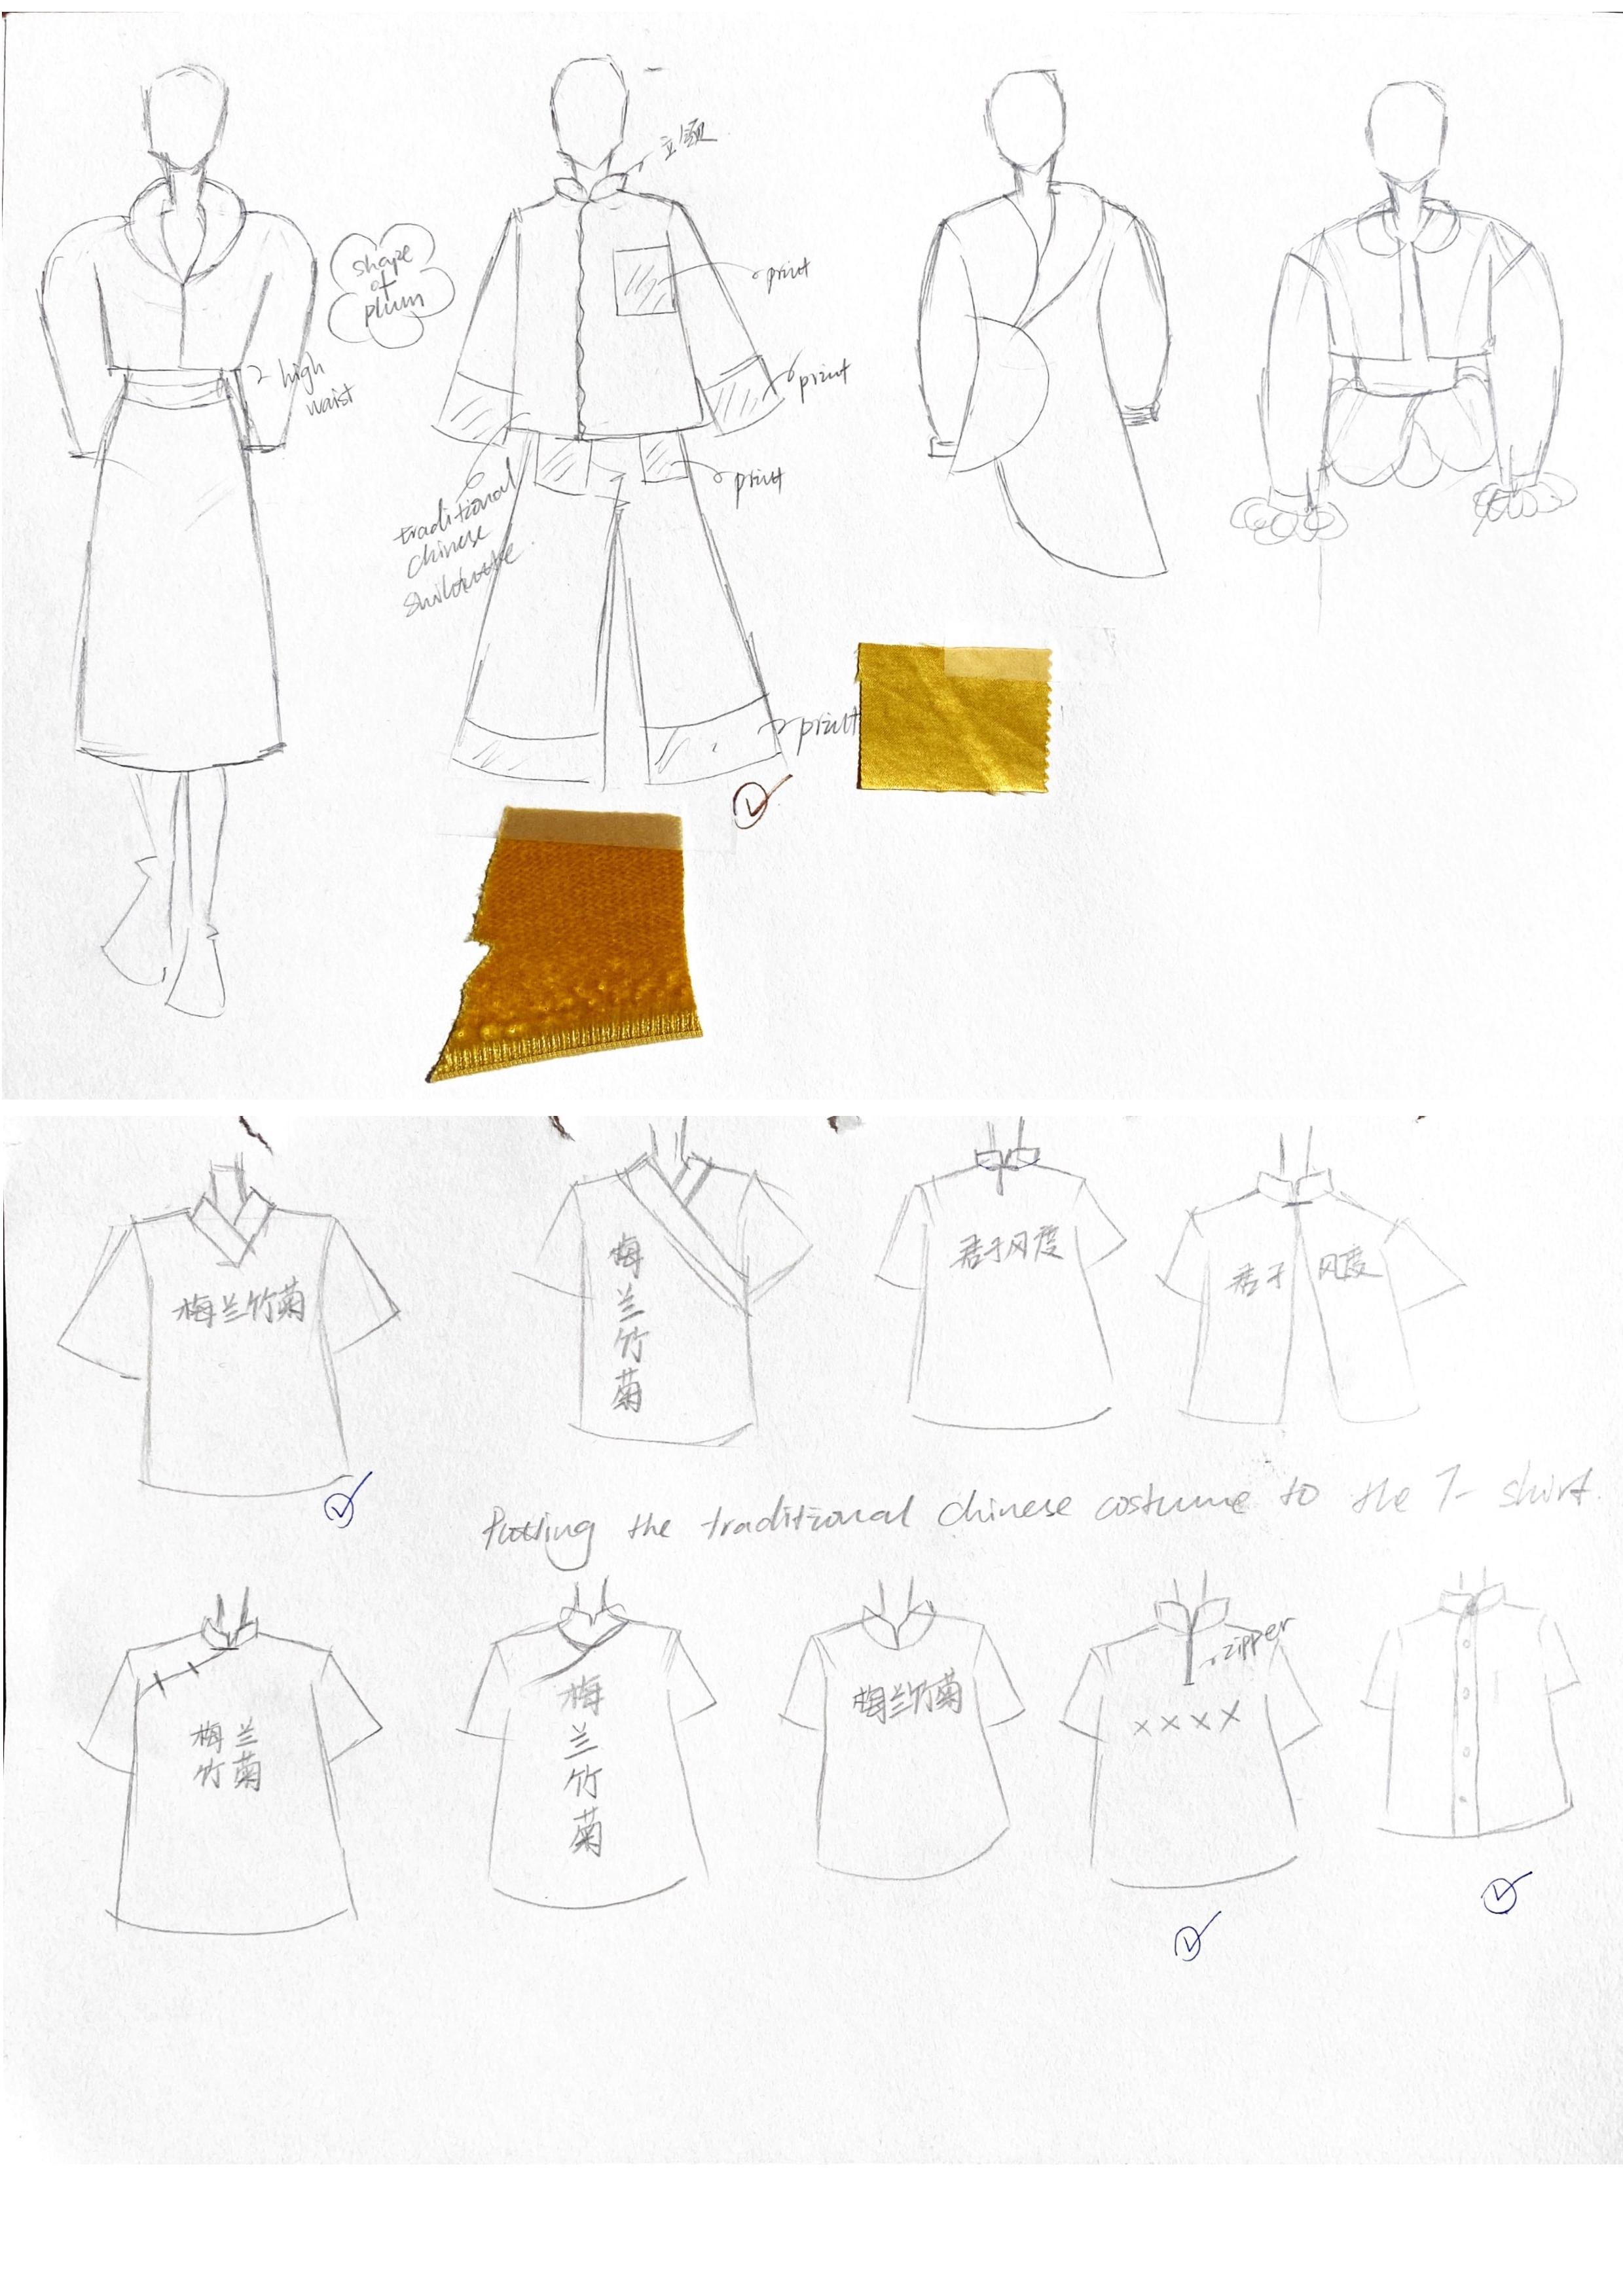 立领
shape
of
plum
print
high
waist
print
print
traditional
chinese
print
梅兰竹菊
梅
兰
竹
菊
君子风度
君子 风度
Putting the traditional chinese costume to the T-shirt.
梅兰
竹菊
梅
兰
竹
菊
梅兰竹菊
zipper
××××